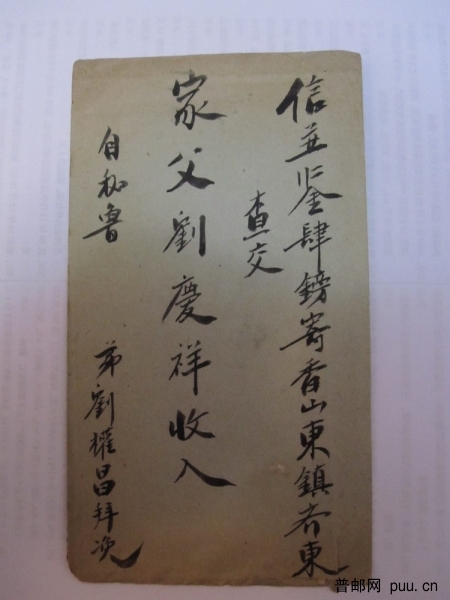 信並鋻肆鎊寄香山東鎮東
查交
家父劉慶祥收入
自秘魯
弟劉耀昌拜
普邮网 puu.cn